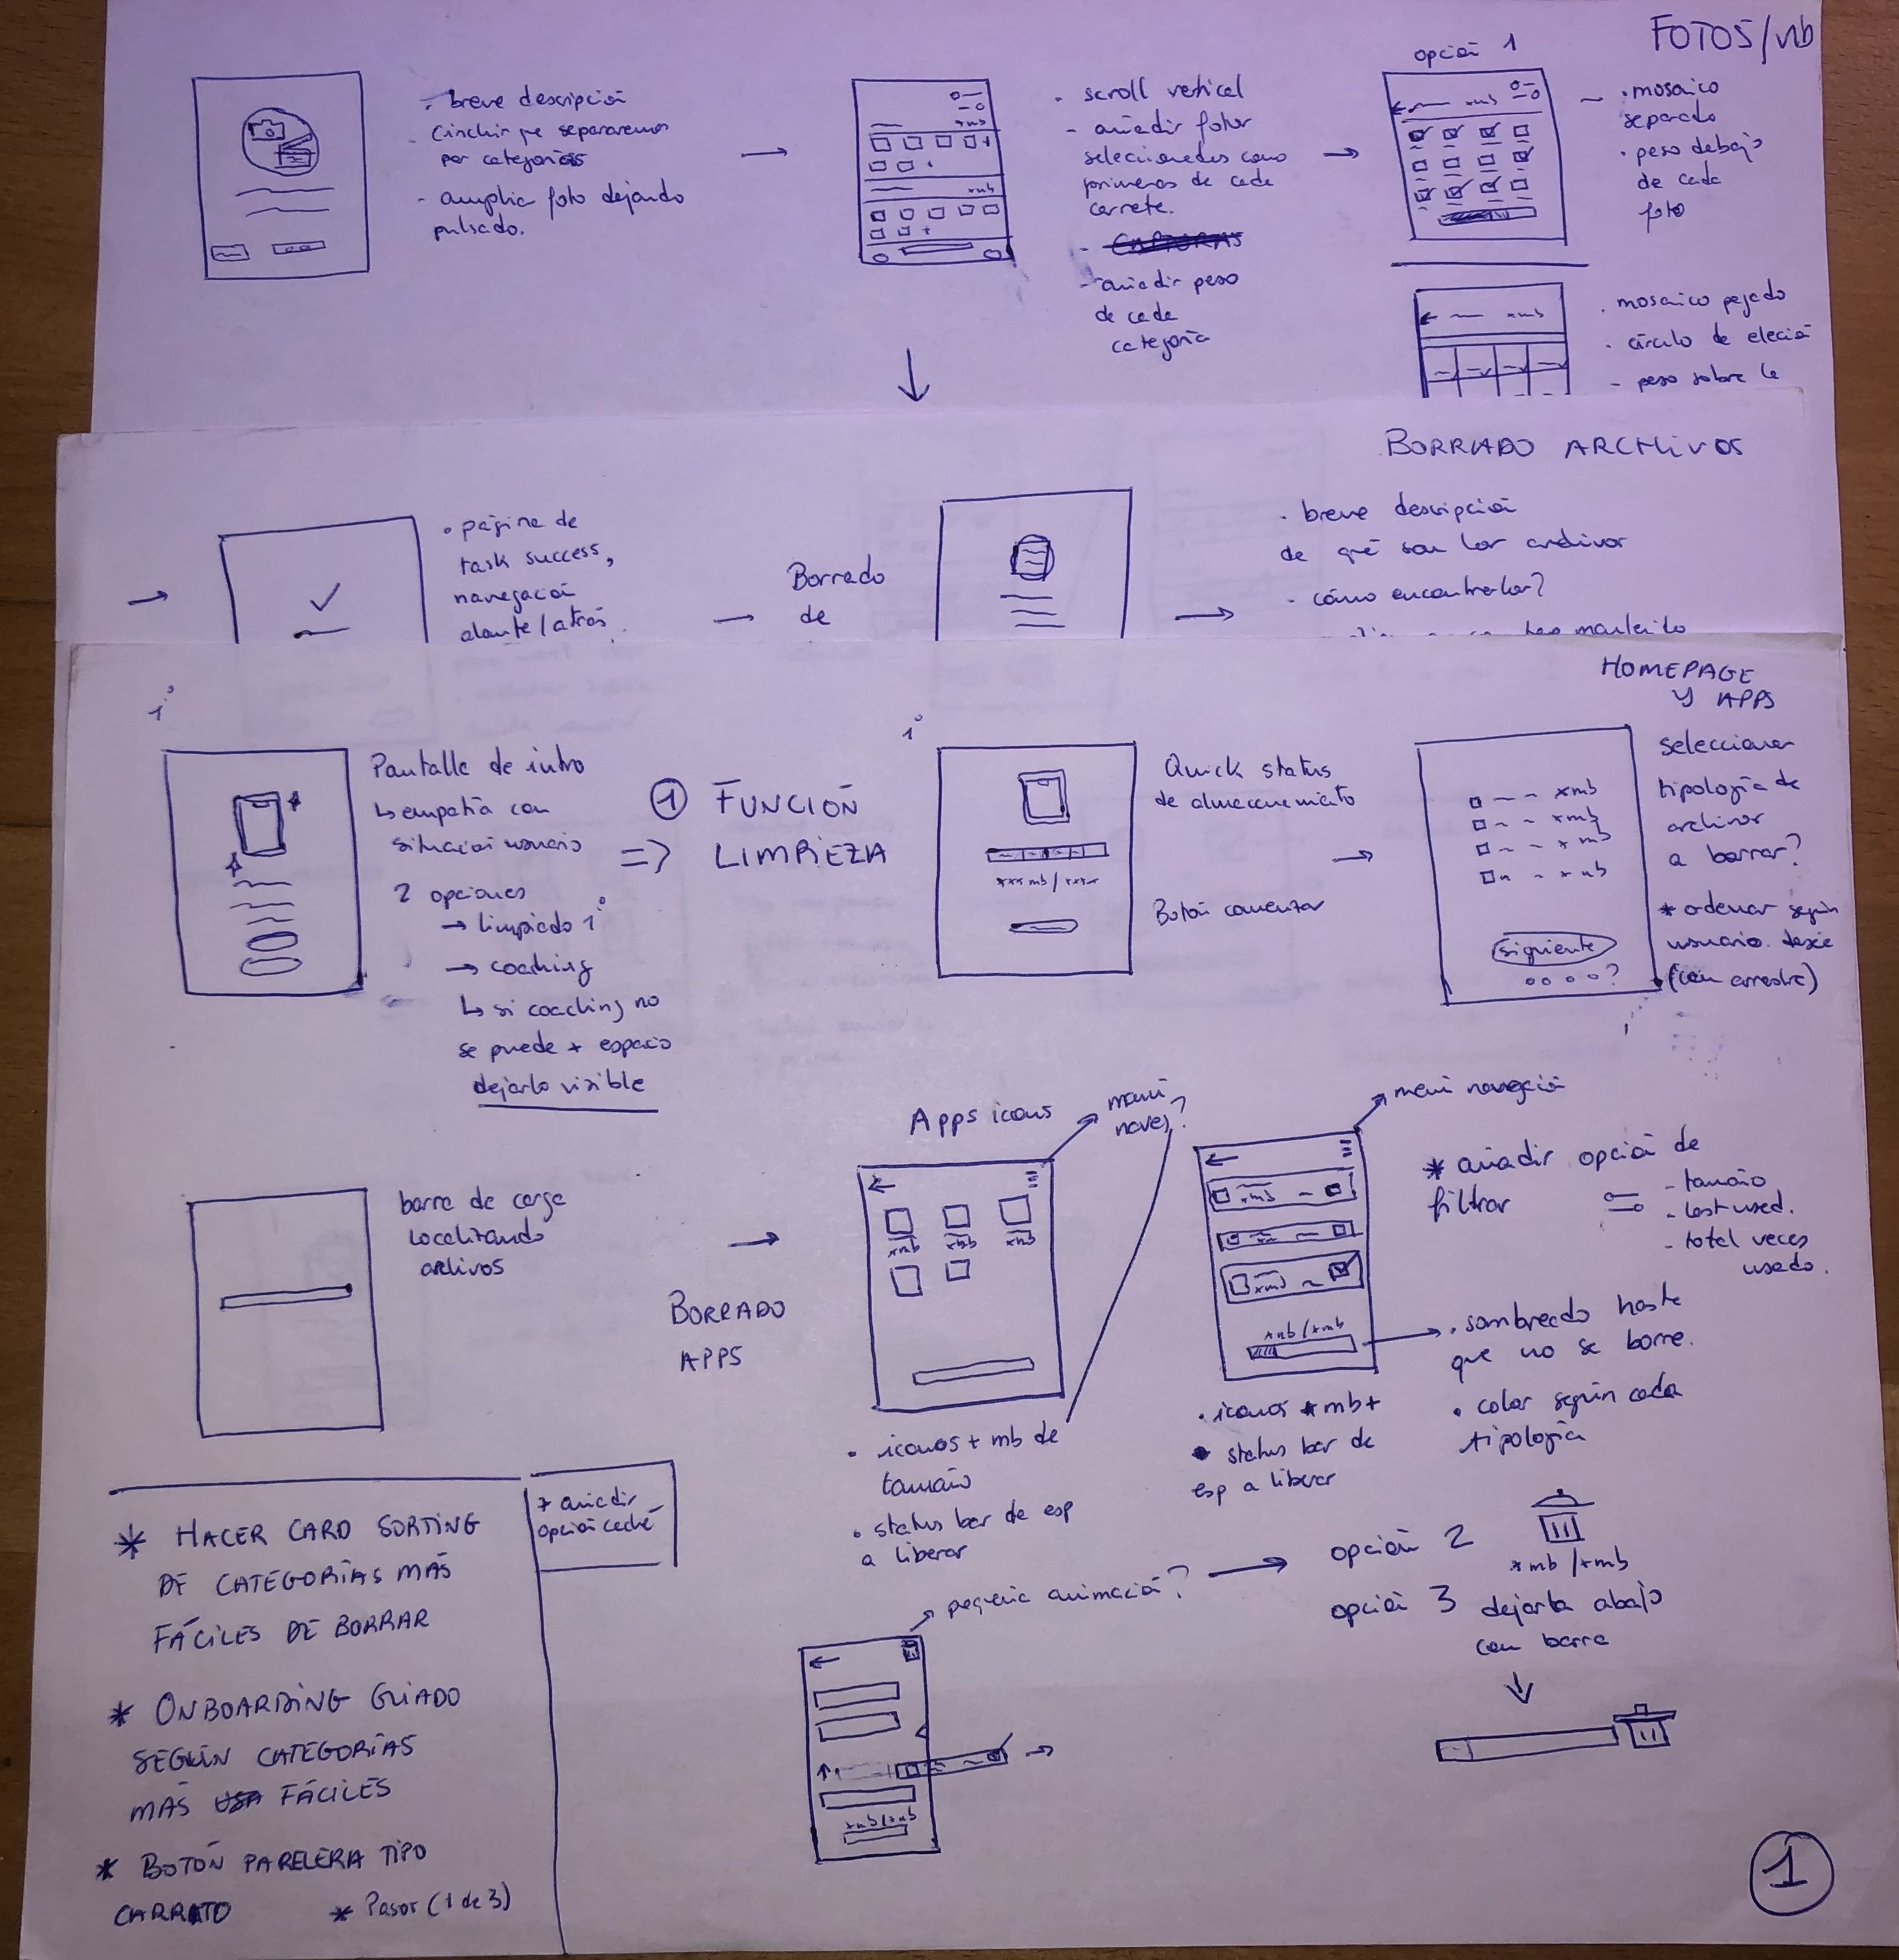 FOTOS/vb
- breve descripción
- (incluir qe separaremos
por categorías
- amplia foto dejando
pulsado.
- scroll vertical
- añadir fotos
seleccionadas como
primeras de cada
carrete.
- CAPTURAS
- añadir peso
de cada
categoría
xmb
xmb
opción 1
xmb
- mosaico
separado
• peso debajo
de cada
foto
xmb
. mosaico pegado
. círculo de elección
- peso sobre la
BORRADO ARCHIVOS
• página de
task success,
navegación
alante/atrás
Borrado
de
- breve descripción
de qué son los archivos
- cómo encontrarlos?
HOMEPAGE
Y APPS
1º
Pantalla de intro
↳ empatía con
situación usuario
2 opciones
→ limpiado 1º
→ coaching
↳ si coaching no
se puede + espacio
dejarlo visible
=> ① FUNCIÓN
LIMPIEZA
1º
xxx mb / xxxx
Quick status
de almacenamiento
Botón comenzar
□ - - xmb
□ - - xmb
□ - - xmb
□ - - xmb
siguiente
o o o o ?
seleccionar
tipología de
archivos
a borrar?
* ordenar según
usuario desee
(con arrastre)
barra de carga
localizando
archivos
BORRADO
APPS
Apps icons
menú
naveg?
xmb xmb xmb
• iconos + mb de
tamaño
• status bar de esp
a liberar
menú navegación
xmb
xmb
xmb/xmb
• iconos + mb +
• status bar de
esp a liberar
* añadir opción de
filtrar
- tamaño
- last used.
- total veces
usado.
• sombreado hasta
que no se borre.
• color según cada
tipología
* HACER CARD SORTING
DE CATEGORÍAS MÁS
FÁCILES DE BORRAR
* ONBOARDING GUIADO
SEGÚN CATEGORÍAS
MÁS USA FÁCILES
* BOTÓN PAPELERA TIPO
CARRITO
* Pasos (1 de 3)
+ añadir
opción caché
pequeña animación?
xmb/xmb
opción 2
xmb/xmb
opción 3 dejarla abajo
con barra
1